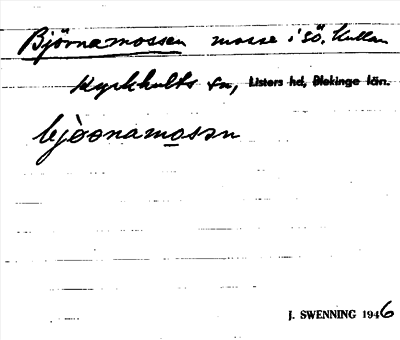 Björnamossen mosse i sö. Kullan
Kyrkhults sn, Listers hd, Blekinge län.
bjö̀onamosən
J. SWENNING 1946